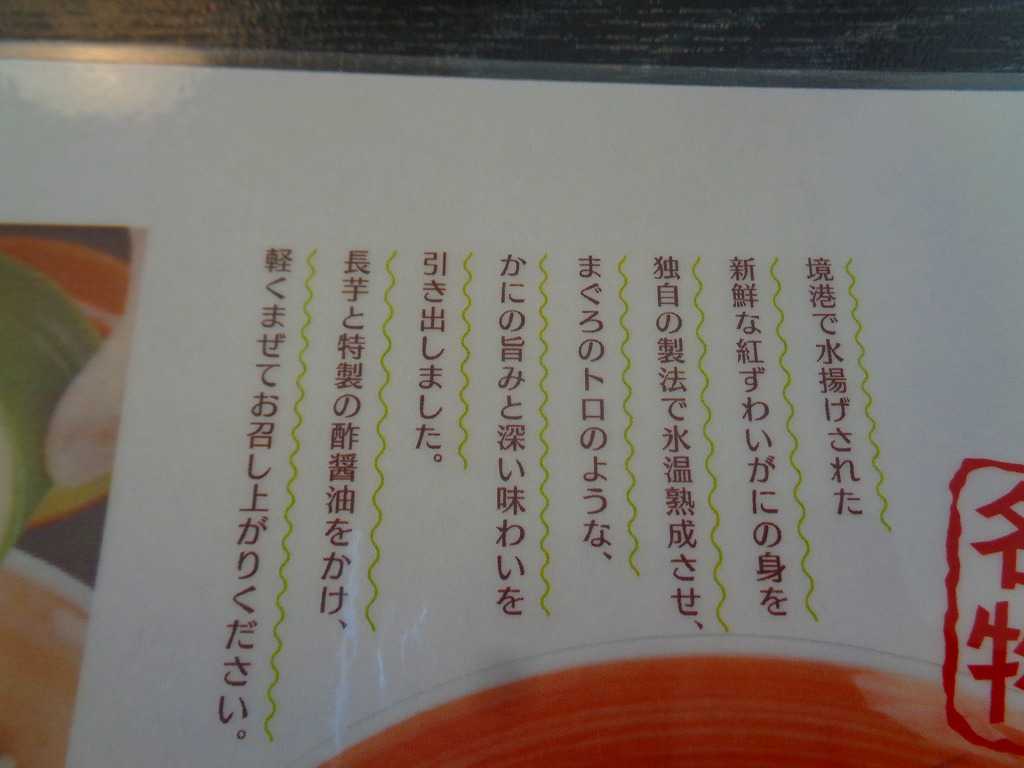 名物
境港で水揚げされた
新鮮な紅ずわいがにの身を
独自の製法で氷温熟成させ、
まぐろのトロのような、
かにの旨みと深い味わいを
引き出しました。
長芋と特製の酢醤油をかけ、
軽くまぜてお召し上がりください。